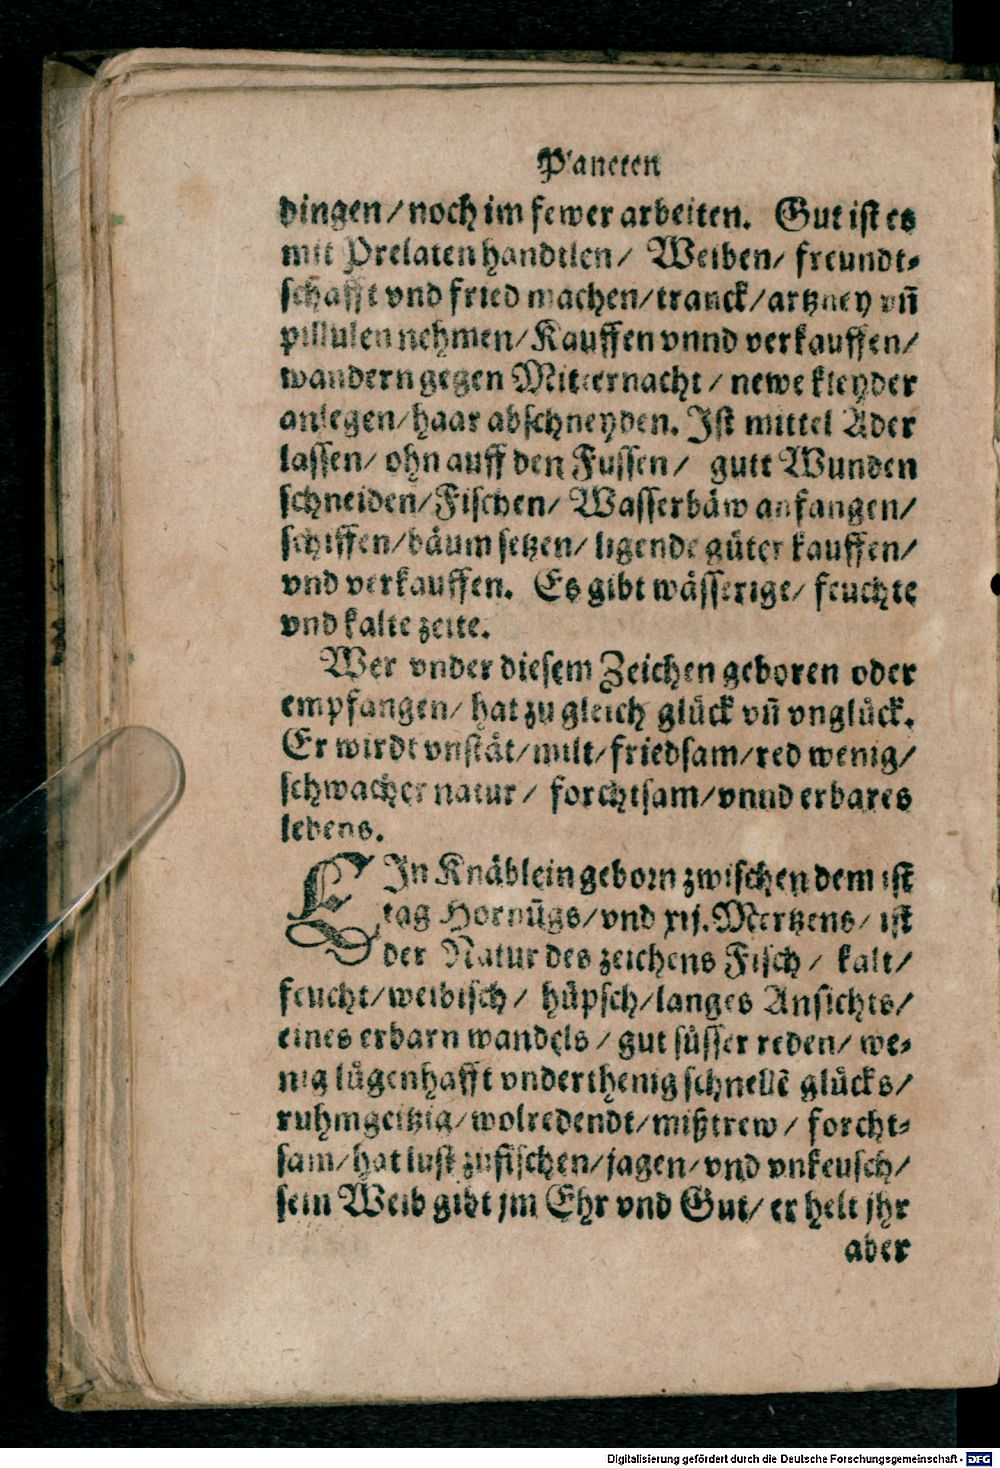 Planeten
dingen/noch im fewer arbeiten. Gut ist es
mit Prelaten handtlen/ Weiben/ freundt-
schafft vnd fried machen/tranck/artzney vñ
pillulen nehmen/Kauffen vnnd verkauffen/
wandern gegen Mitternacht/ newe kleyder
anlegen/haar abschneyden. Ist mittel Ader
lassen/ ohn auff den Fussen/ gutt Wunden
schneiden/Fischen/ Wasserbäw anfangen/
schiffen/bäum setzen/ ligende güter kauffen/
vnd verkauffen. Es gibt wässerige/ feuchte
vnd kalte zeite.
Wer vnder diesem Zeichen geboren oder
empfangen/ hat zu gleich glück vñ vnglück.
Er wirdt vnstät/milt/friedsam/red wenig/
schwacher natur/ forchtsam/vnnd erbares
lebens.
EIn Knäblein geborn zwischen dem
tag Hornügs/vnd xij. Mertzens/ ist
der Natur des zeichens Fisch/ kalt/
feucht/weibisch/ hüpsch/langes Ansichts/
eines erbarn wandels/ gut süsser reden/ we-
nig lügenhafft vnderthenig schnellẽ glücks/
ruhmgeitzig/wolredendt/mißtrew/ forcht-
sam/hat lust zufischen/jagen/vnd vnkeusch/
sein Weib gibt jm Ehr vnd Gut/ er helt jhr
aber
Digitalisierung gefördert durch die Deutsche Forschungsgemeinschaft - DFG